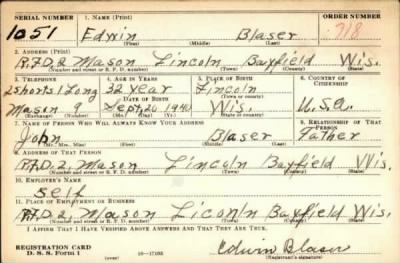 SERIAL NUMBER 1. NAME (Print) ORDER NUMBER
1051 Edwin Blaser 718
(First) (Middle) (Last)
2. ADDRESS (Print)
R.F.D. 2 Mason Lincoln Bayfield Wis.
(Number and street or R. F. D. number) (Town) (County) (State)
3. TELEPHONE 4. AGE IN YEARS 5. PLACE OF BIRTH 6. COUNTRY OF CITIZENSHIP
2 shorts 1 Long 32 year Lincoln
DATE OF BIRTH (Town or county)
Mason 9 Sept. 20 1940 Wis. U.S.A.
(Exchange) (Number) (Mo.) (Day) (Yr.) (State or country)
7. NAME OF PERSON WHO WILL ALWAYS KNOW YOUR ADDRESS 8. RELATIONSHIP OF THAT PERSON
John Blaser Father
(Mr., Mrs., Miss) (First) (Middle) (Last)
9. ADDRESS OF THAT PERSON
R.F.D. 2, Mason Lincoln Bayfield Wis.
(Number and street or R. F. D. number) (Town) (County) (State)
10. EMPLOYER'S NAME
Self
11. PLACE OF EMPLOYMENT OR BUSINESS
R.F.D. 2 Mason Liconln Bayfield Wis.
(Number and street or R. F. D. number) (Town) (County) (State)
I AFFIRM THAT I HAVE VERIFIED ABOVE ANSWERS AND THAT THEY ARE TRUE.
REGISTRATION CARD
D. S. S. Form 1 (over) 16—17105
Edwin Blaser
(Registrant's signature)